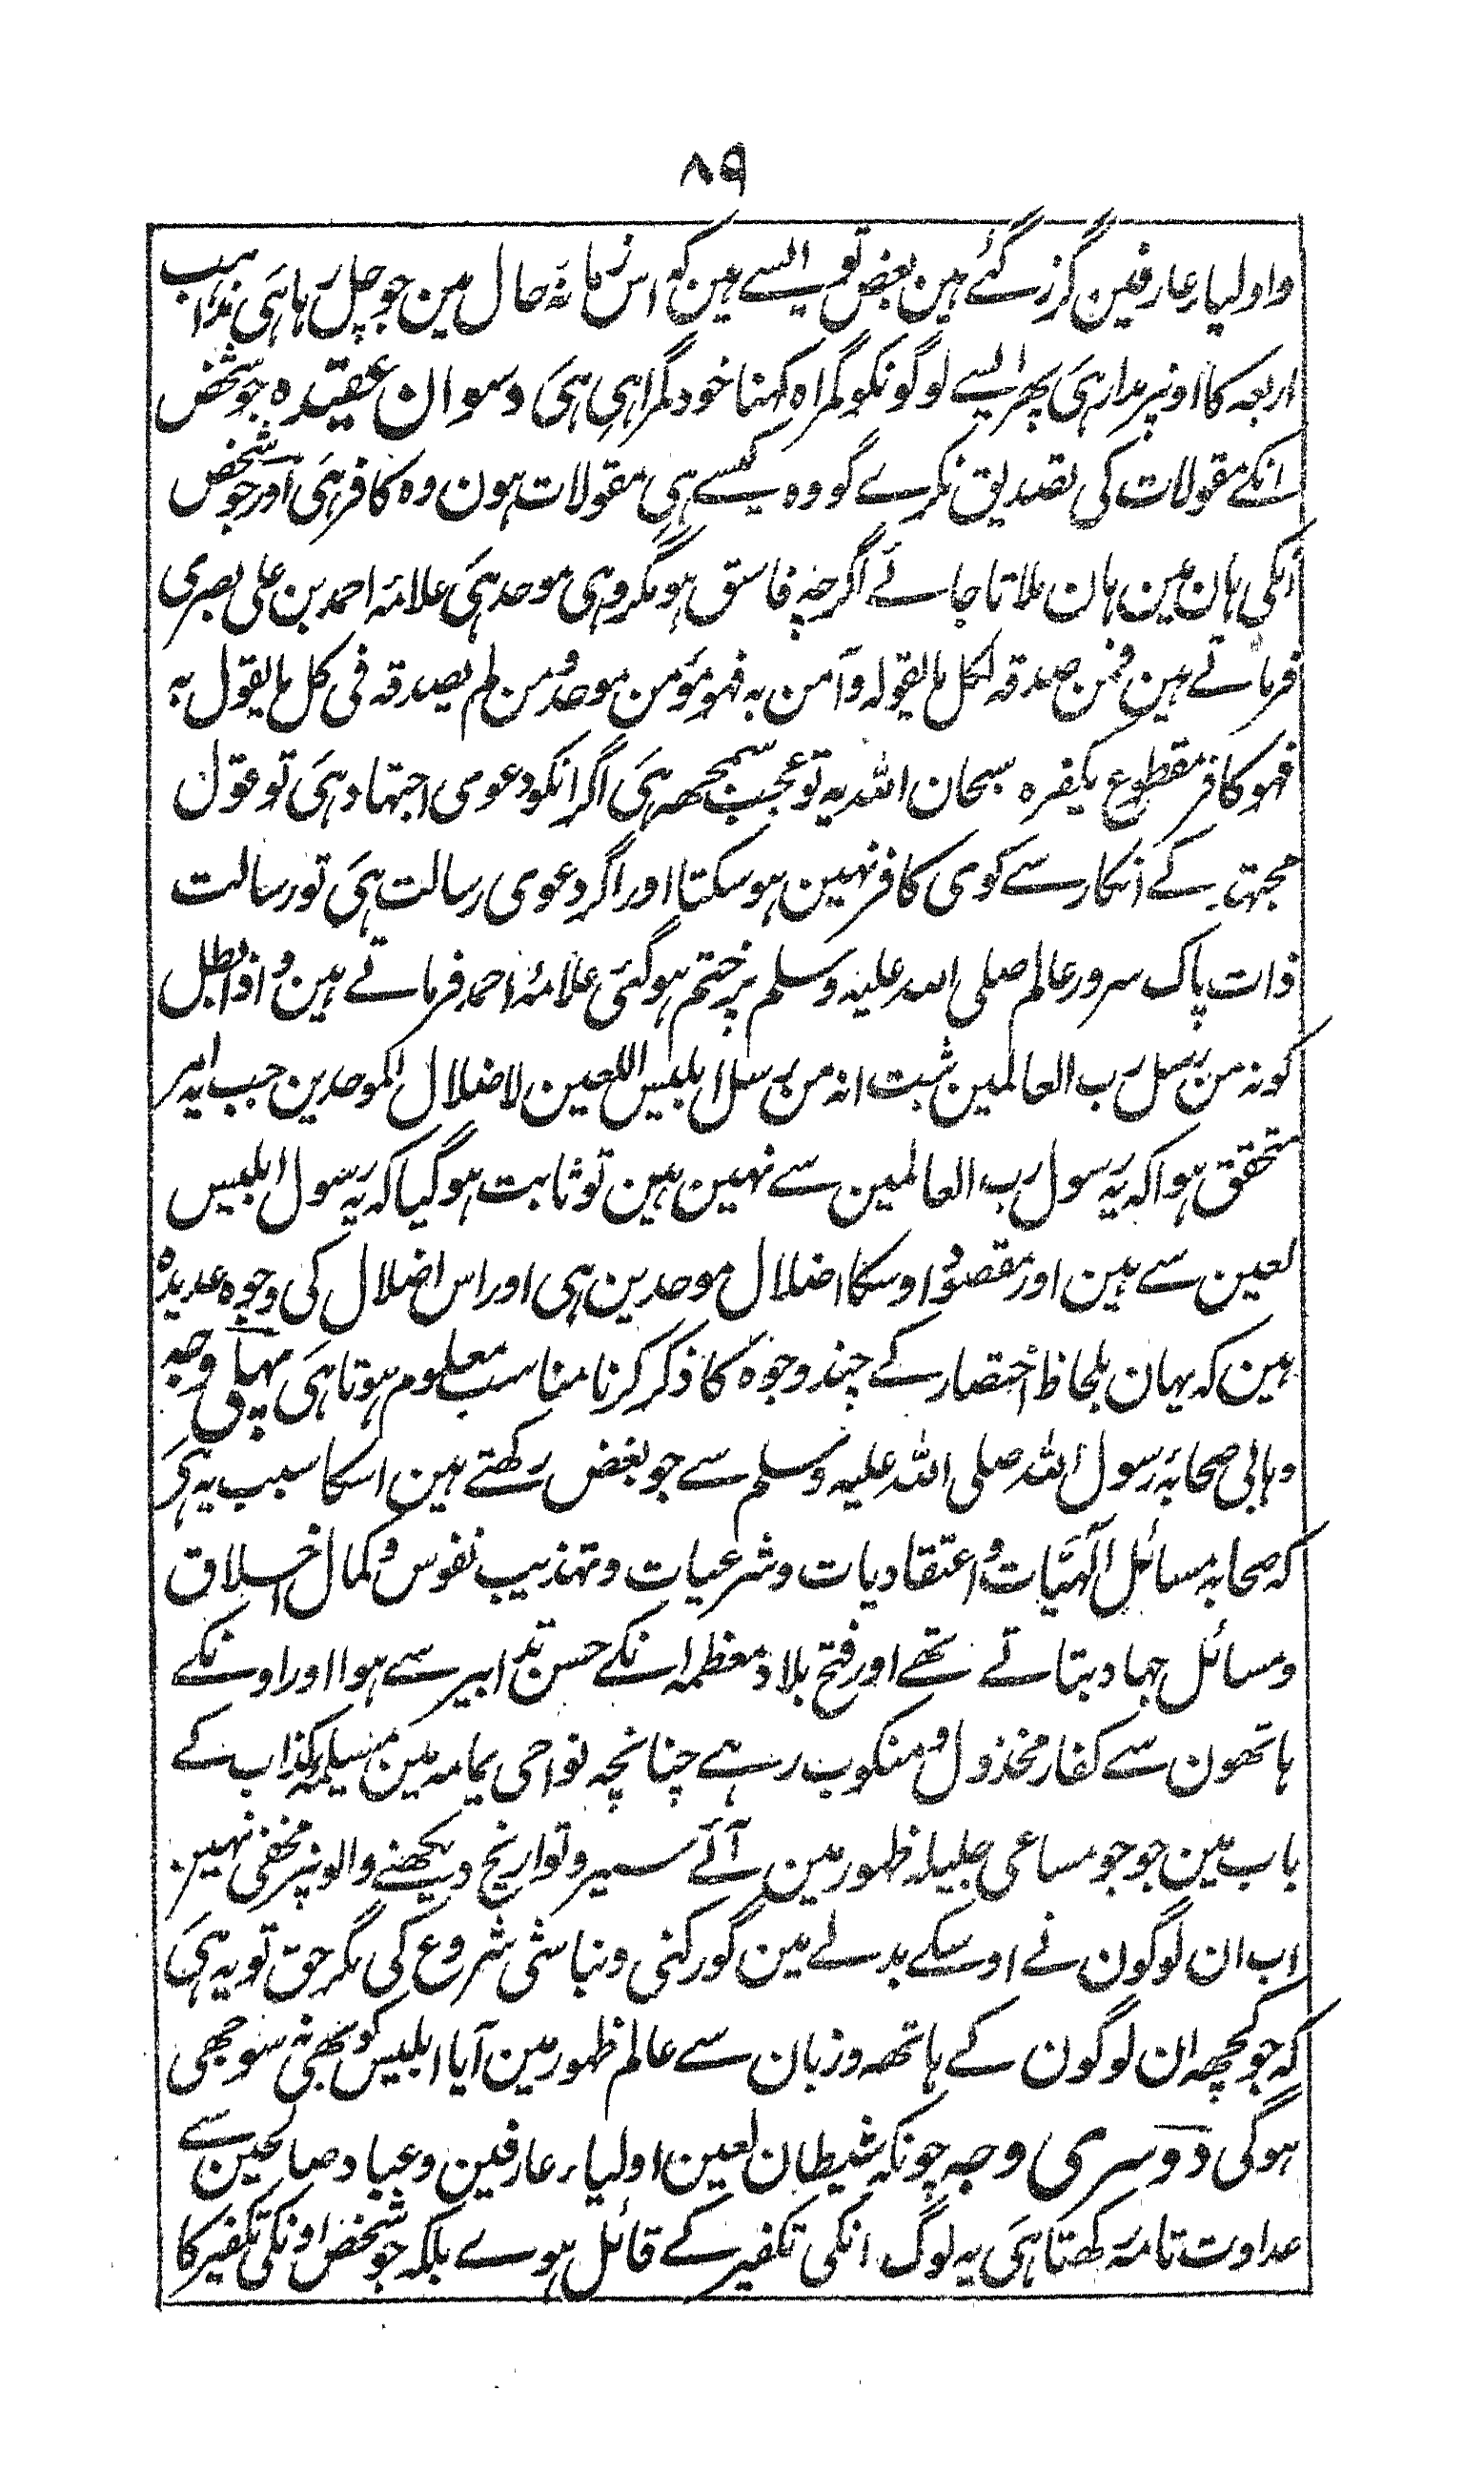 ۸۹
واولیاء عارفین گزر گئے ہین بعض تو ایسے ہین کہ اس زمانۂ حال مین جو چل رہا ہی مذاہب
اربعہ کا اونپر مدار ہی پھر ایسے لوگونکو گمراہ کہنا خود گمراہی ہی دسوان عقیدہ جو شخص
انکے مقولات کی تصدیق نکرے گو وہ کیسے ہی مقولات ہون وہ کافر ہی اور جو شخص
انکی ہان مین ہان ملاتا جائے اگرچہ فاسق ہو مگر وہی موحد ہی علامہ احمد بن علی بصری
فرماتے ہین فمن صدقہ لکل ما یقولہ وآمن بہ فہو مؤمن موحد ومن لم یصدقہ فی کل ما یقول بہ
فہو کافر مقطوع بکفرہ سبحان اللہ یہ تو عجب سمجھہ ہی اگر انکو دعوی اجتہاد ہی تو قول
مجتہد کے انکار سے کوی کافر نہین ہو سکتا اور اگر دعوی رسالت ہی تو رسالت
ذات پاک سرور عالم صلی اللہ علیہ وسلم پر ختم ہو گئی علامہ احمد فرماتے ہین واذا بطل
کونہ من رسل رب العالمین ثبت انہ من رسل ابلیس اللعین لاضلال الموحدین جب یہ امر
متحقق ہوا کہ یہ رسول رب العالمین سے نہین ہین تو ثابت ہو گیا کہ یہ رسول ابلیس
لعین سے ہین اور مقصود اوسکا اضلال موحدین ہی اور اس اضلال کی وجوہ عدیدہ
ہین کہ یہان بلحاظ اختصار کے چند وجوہ کا ذکر کرنا مناسب معلوم ہوتا ہی پہلی وجہ
وہابی صحابۂ رسول اللہ صلی اللہ علیہ وسلم سے جو بغض رکھتے ہین اسکا سبب یہ ہی
کہ صحابہ مسائل الٰہیات واعتقادیات وشرعیات وتہذیب نفوس وکمال اخلاق
ومسائل جہاد بتاتے تھے اور فتح بلاد معظمہ انکے حسن تدابیر سے ہوا اور اونکے
ہاتھون سے کفار مخذول ومنکوب رہے چنانچہ نواحی یمامہ مین مسیلمہ کذاب کے
باب مین جو جو مساعی جلیلہ ظہور مین آئے سیر وتواریخ دیکھنے والونپر مخفی نہین
اب ان لوگون نے اوسکے بدلے مین گورکنی ونباشی شروع کی مگر حق تو یہ ہی
کہ جو کچھہ ان لوگون کے ہاتھہ وزبان سے عالم ظہور مین آیا ابلیس کو بھی نہ سوجھی
ہوگی دوسری وجہ چونکہ شیطان لعین اولیاء عارفین وعباد صالحین سے
عداوت تامہ رکھتا ہی یہ لوگ انکی تکفیر کے قائل ہوے بلکہ جو شخص اونکی تکفیر کا